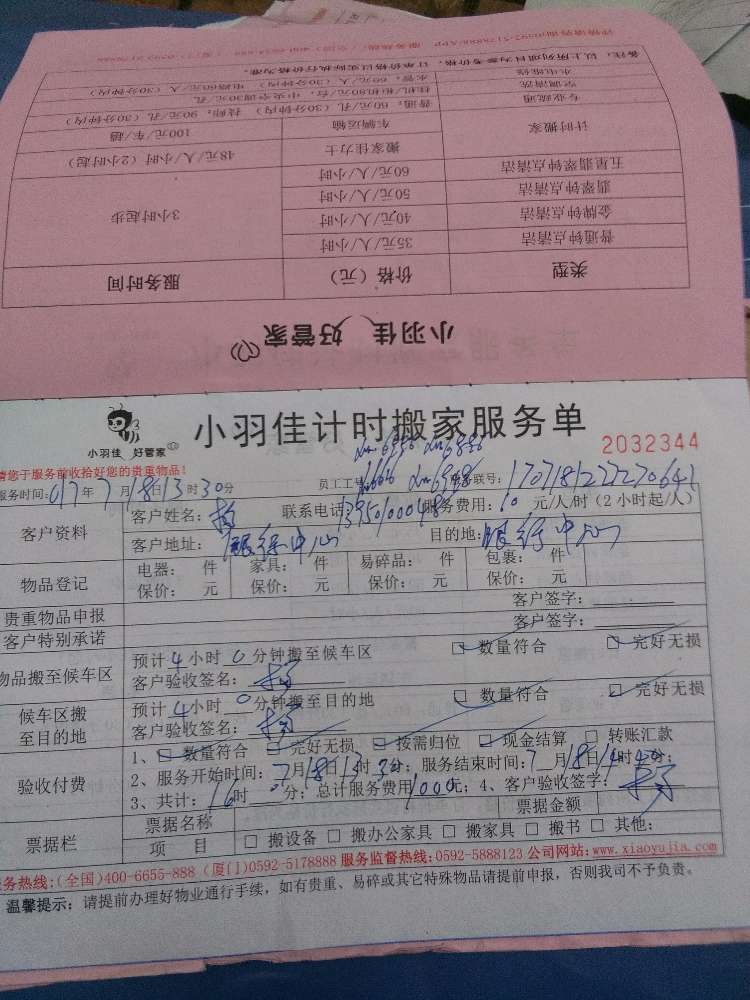 详情请咨询0592-5178888/APP 服务热线:(全国)400-6655-888 (厦门)0592-5178888
备注:以上所列项目为参考价格,订单价格以实际执行价格为准。
小羽佳 好管家
类型 价格(元) 服务时间
普通钟点清洁 35元/人/小时
金牌钟点清洁 40元/人/小时
3小时起步
翡翠钟点清洁 50元/人/小时
五星翡翠钟点清洁 60元/人/小时
计时搬家
搬家佳力士 48元/人/小时(2小时起)
车辆运输 100元/车/趟
专业疏通
空调清洗
水电维修
小羽佳 好管家
小羽佳计时搬家服务单
2032344
请您于服务前收拾好您的贵重物品!
员工工号:
服务联号:
服务时间:017年7月18日13时30分
客户资料
客户姓名:杨 联系电话: 服务费用: 元/人/时(2小时起/人)
客户地址: 中心 目的地: 中心
物品登记
电器: 件 家具: 件 易碎品: 件 包裹: 件
保价: 元 保价: 元 保价: 元 保价: 元
贵重物品申报 客户签字:
客户特别承诺 客户签字:
物品搬至候车区
预计4小时0分钟搬至候车区 数量符合 完好无损
客户验收签名:杨
候车区搬至目的地
预计4小时0分钟搬至目的地 数量符合 完好无损
客户验收签名:杨
验收付费
1、数量符合 完好无损 按需归位 现金结算 转账汇款
2、服务开始时间:7月18日13时30分;服务结束时间:7月18日 时 分;
3、共计:16时 分;总计服务费用1000元;4、客户验收签字:杨
票据栏
票据名称 票据金额
项 目 搬设备 搬办公家具 搬家具 搬书 其他:
服务热线:(全国)400-6655-888 (厦门)0592-5178888 服务监督热线:0592-5888123 公司网站:www.xiaoyujia.com
温馨提示:请提前办理好物业通行手续,如有贵重、易碎或其它特殊物品请提前申报,否则我司不予负责。